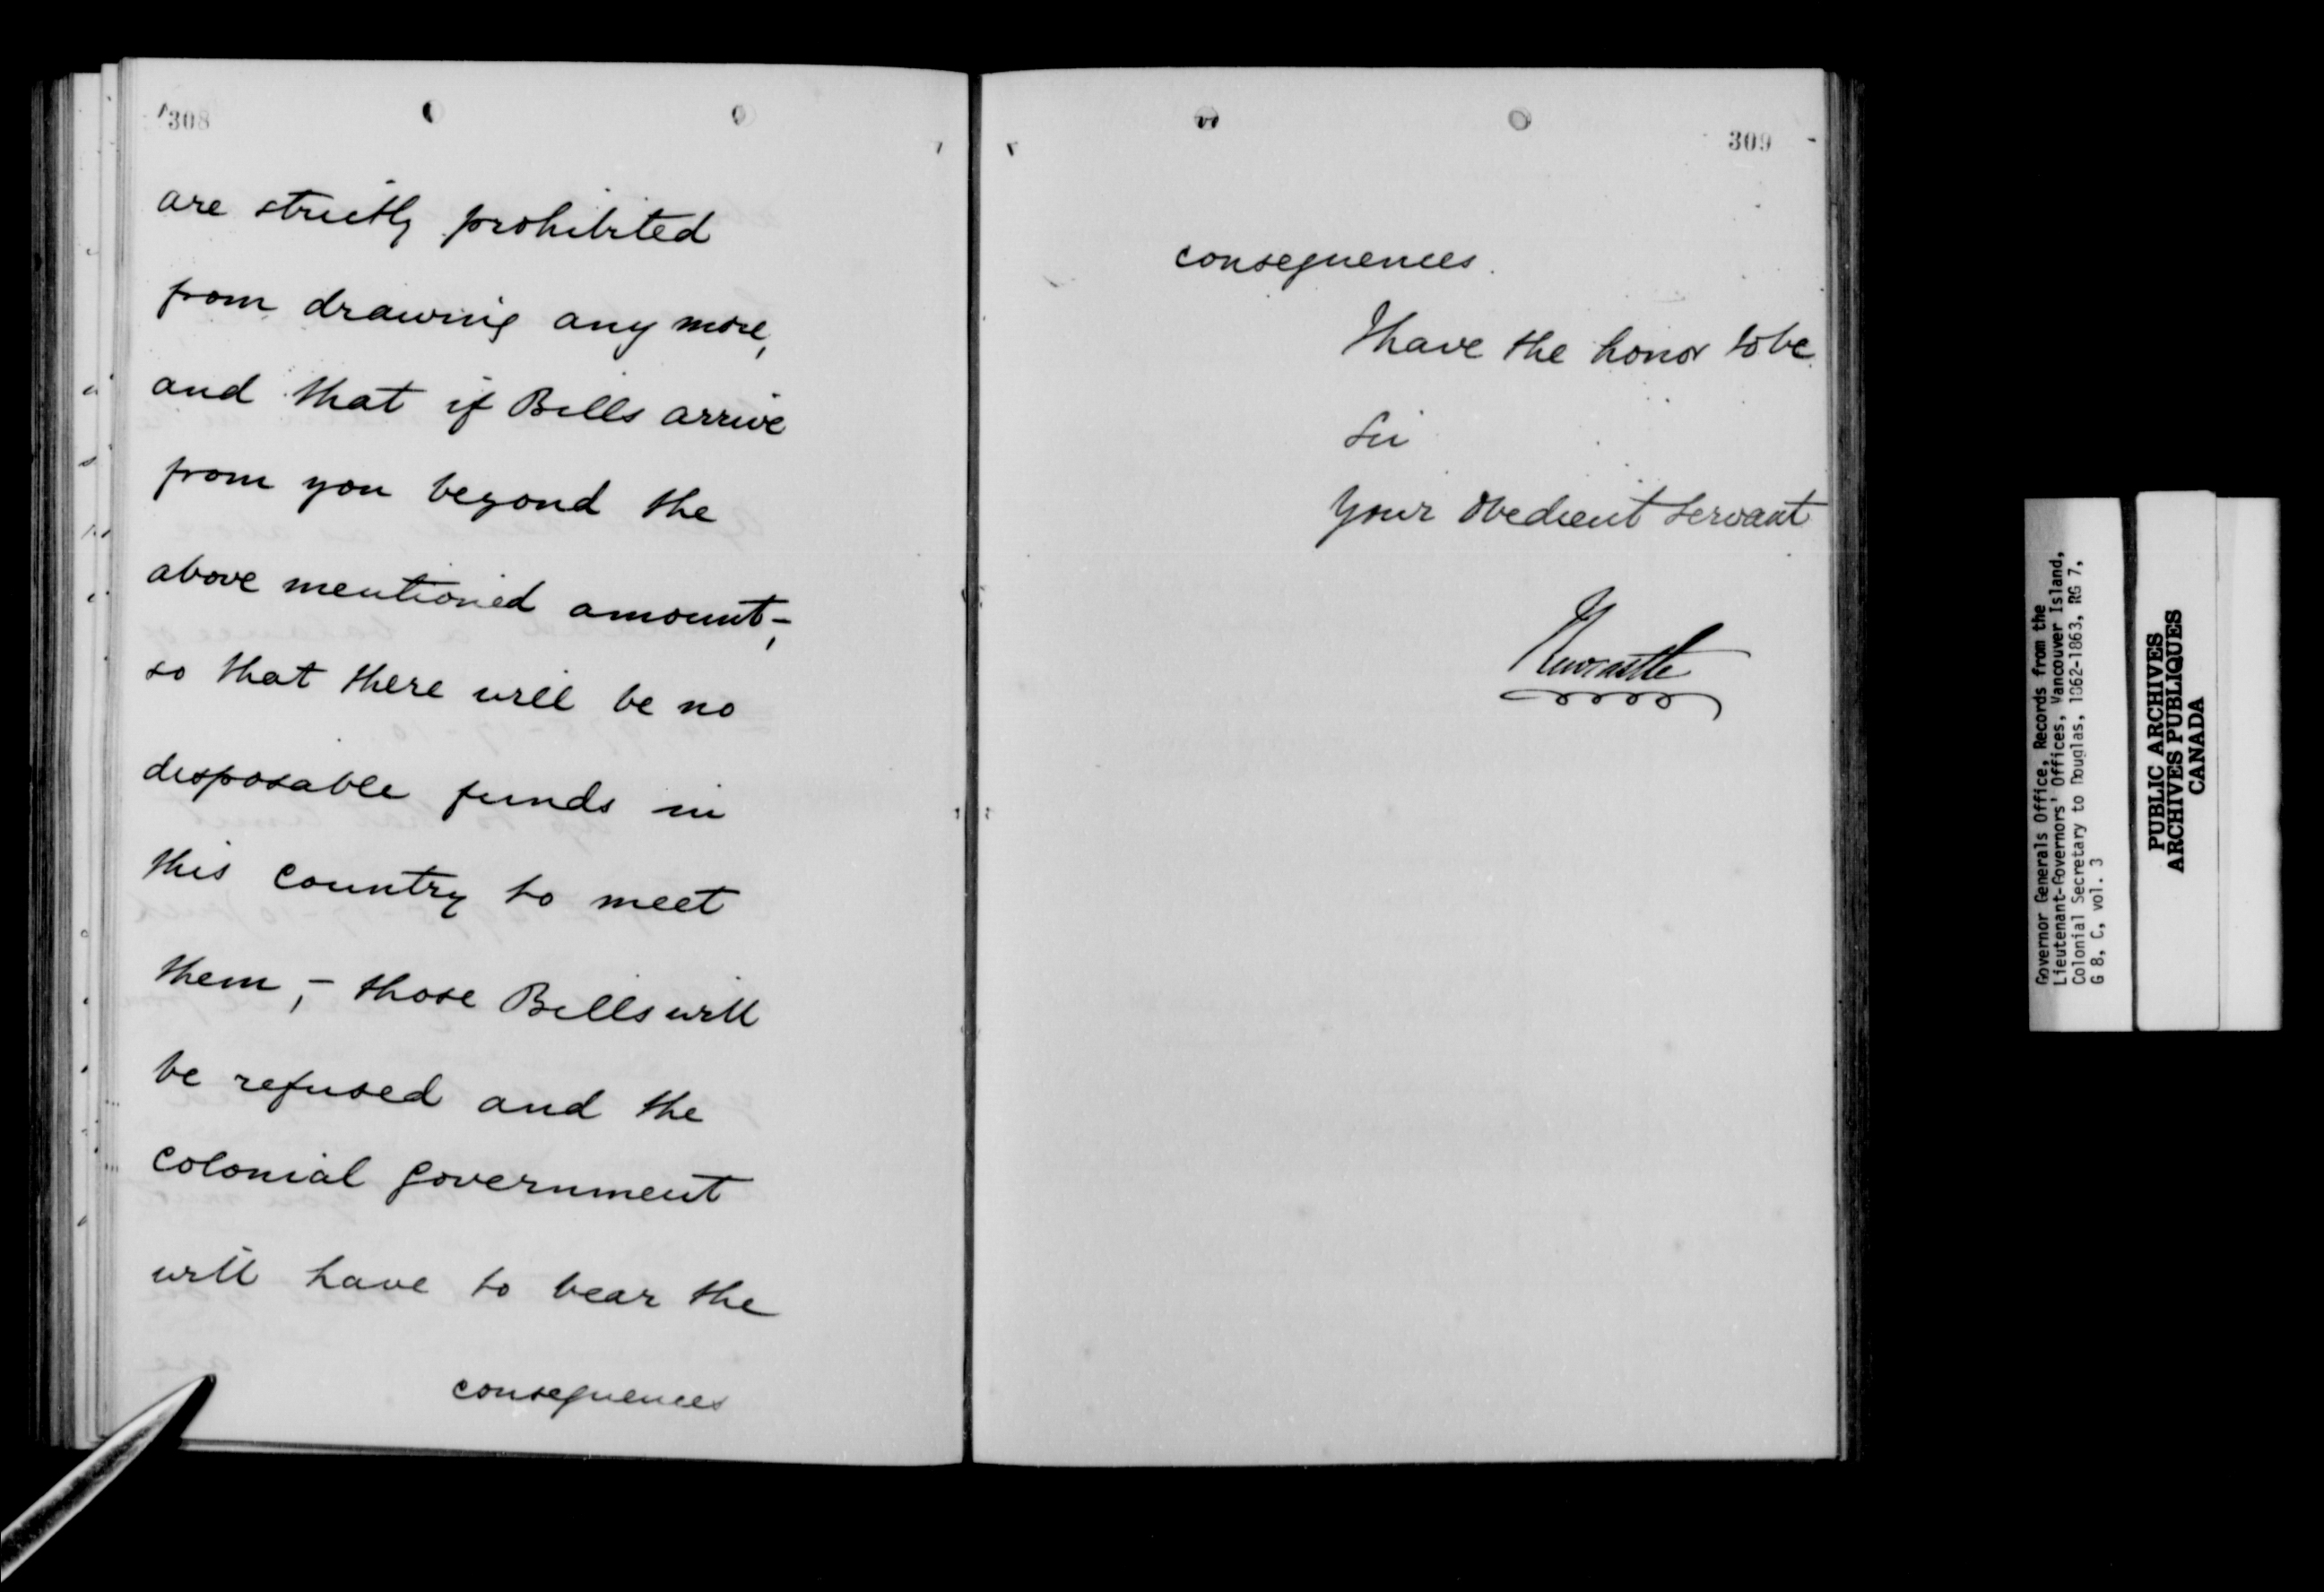 308
are strictly prohibited
from drawing any more,
and that if Bills arrive
from you beyond the
above mentioned amount,-
so that there will be no
disposable funds in
this country to meet
them,- those Bills will
be refused and the
colonial government
will have to bear the
consequences
309
consequences.
I have the honor to be
Sir
Your obedient servant
Newcastle
Governor Generals Office, Records from the
Lieutenant-Governors' Offices, Vancouver Island,
Colonial Secretary to Douglas, 1862-1863, RG 7,
G 8, C, vol. 3
PUBLIC ARCHIVES
ARCHIVES PUBLIQUES
CANADA